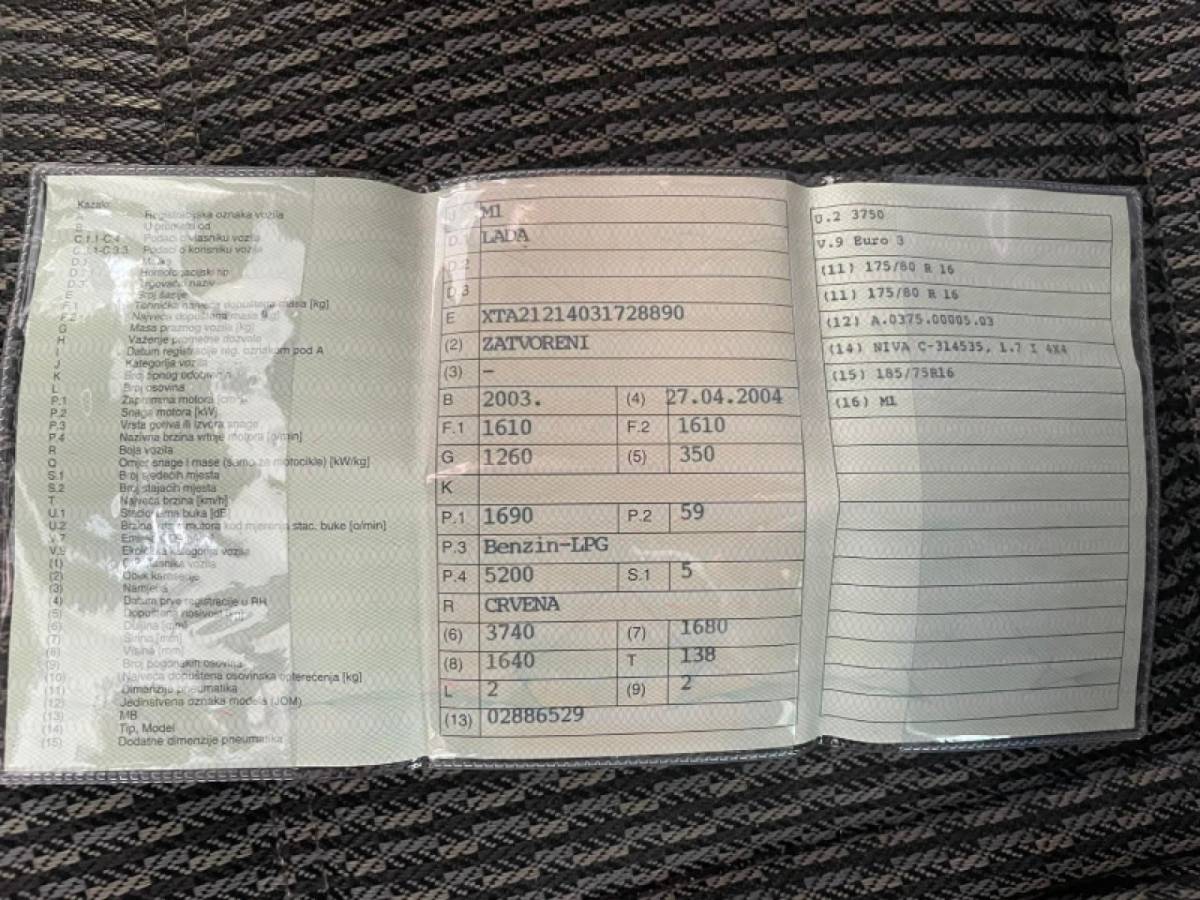 Kazalo:
Registracijska oznaka vozila
U prometu od
C.1.1-C.4 Podaci o vlasniku vozila
C.1.1-C.3.3 Podaci o korisniku vozila
D.1 Marka
D.2 Homologacijski tip
D.3 Trgovački naziv
E Broj šasije
F.1 Tehnički najveća dopuštena masa [kg]
F.2 Najveća dopuštena masa [kg]
G Masa praznog vozila [kg]
H Važenje prometne dozvole
I Datum registracije reg. oznakom pod A
J Kategorija vozila
K Broj tipnog odobrenja
L Broj osovina
P.1 Zapremina motora
P.2 Snaga motora [kW]
P.3 Vrsta goriva ili izvora snage
P.4 Nazivna brzina vrtnje motora [o/min]
R Boja vozila
Q Omjer snage i mase (samo za motocikle) [kW/kg]
S.1 Broj sjedećih mjesta
S.2 Broj stajaćih mjesta
T Najveća brzina [km/h]
U.1 Stacionarna buka [dB]
U.2 Brzina motora kod mjerenja stac. buke [o/min]
V.7
V.9 Ekološka kategorija vozila
(1) vlasnika vozila
(2) Oblik karoserije
(3) Namjena
(4) Datum prve registracije u RH
(5) Dopuštena nosivost [kg]
(6) Dužina [mm]
(7) Širina [mm]
(8) Visina [mm]
(9) Broj pogonskih osovina
(10) Najveća dopuštena osovinska opterećenja [kg]
(11) Dimenzije pneumatika
(12) Jedinstvena oznaka modela (JOM)
(13) MB
(14) Tip, Model
(15) Dodatne dimenzije pneumatika
J M1
D.1 LADA
D.2
D.3
E XTA21214031728890
(2) ZATVORENI
(3) –
B 2003. (4) 27.04.2004
F.1 1610 F.2 1610
G 1260 (5) 350
K
P.1 1690 P.2 59
P.3 Benzin-LPG
P.4 5200 S.1 5
R CRVENA
(6) 3740 (7) 1680
(8) 1640 T 138
L 2 (9) 2
(13) 02886529
U.2 3750
V.9 Euro 3
(11) 175/80 R 16
(11) 175/80 R 16
(12) A.0375.00005.03
(14) NIVA C-314535, 1.7 I 4X4
(15) 185/75R16
(16) M1